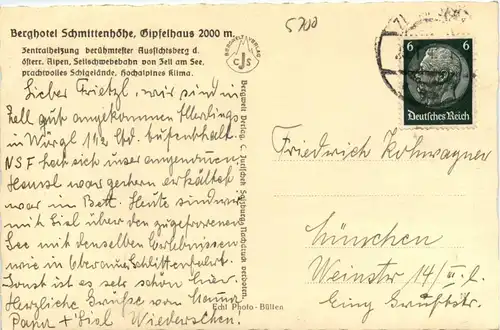 Berghotel Schmittenhöhe, Gipfelhaus 2000 m.
Zentralheizung berühmtester Aussichtsberg d.
österr. Alpen, Seilschwebebahn von Zell am See.
prachtvolles Schigelände, Hochalpines Klima.
BERGWELT VERLAG
CJS
5700
6 6
Deutsches Reich
Lieber Frietzl, wir sind in
Zell gut angekommen allerdings
in Wörgl 1½ Std. Aufenthalt.
NSF hat sich unser angenommen
Hansl war gestern erkältet
war im Bett. Heute sind wir
mit Sisl über den zugefrorenen
See mit denselben Erlebnissen
wie in Oberau Schlittenfahrt.
Sonst ist es sehr schön hier.
Herzliche Grüsse von Mama
Papa + Sisl Wiedersehen.
Bergwelt Verlag, C. Jurischek Salzburg, Nachdruck verboten.
Echt Photo-Bütten
Friedrich Kohwagner
München
Weinstr 14/II. l.
Eing